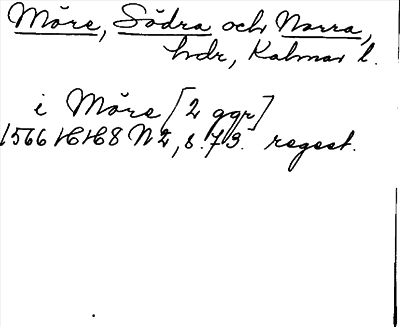 Möre, Södra och Norra,
hdr, Kalmar l.
i Möre [2 ggr]
1566 HH8 N 2, s. 73. regest.